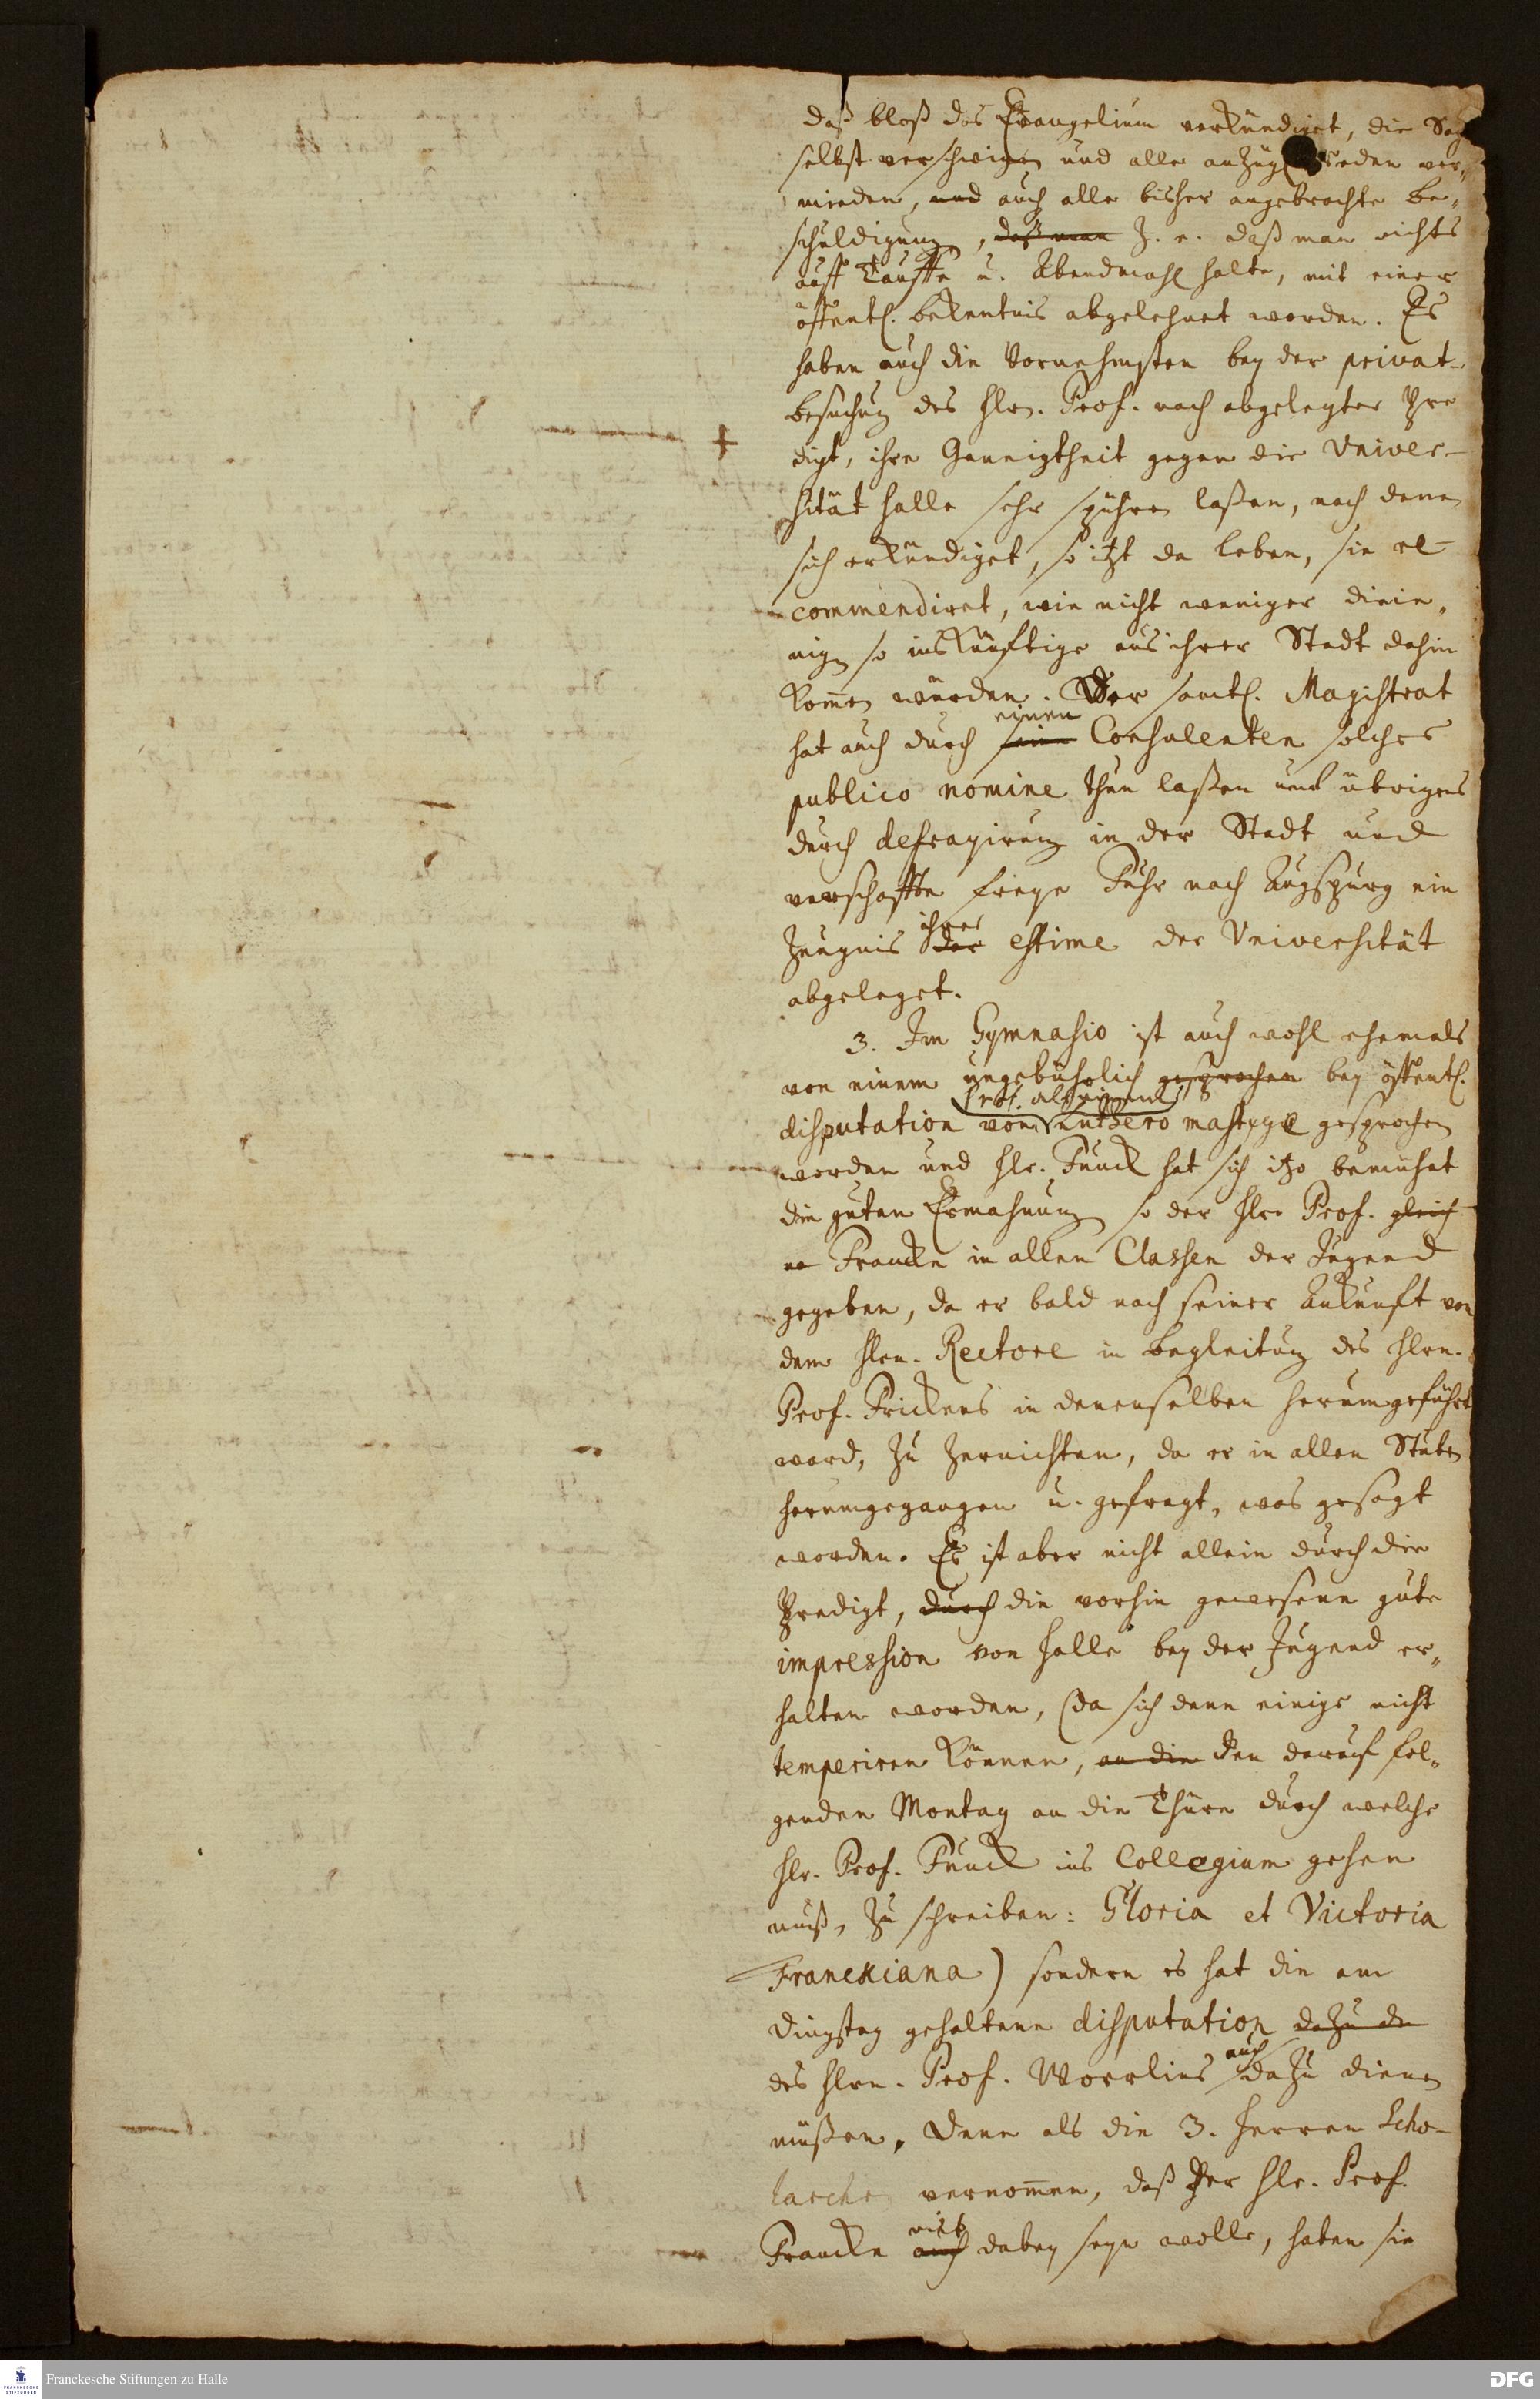 daß bloß das Evangelium verkündiget, die Sach
selbst verschwigen und alle anzügl. reden ver„
mieden, und auch alle bisher angebrachte be„
schuldigung, daß man z. e. daß man nichts
auff Tauffe u. Abendmahl halte, mit einer
öffentl. bekentnis abgelehnet worden. Es
haben auch die Vornehmsten bey der privat-
besuchung des Hrn. Prof. nach abgelegter Pre
digt, ihre Geneigtheit gegen die Univer-
sität Halle sehr spühren laßen, nach denen
sich erkundiget, so itzt da leben, sie re-
commendiret, wie nicht weniger dieie„
nigen so ins künftige aus ihrer Stadt dahin
kommen würden. Der samtl. Magistrat
einen
hat auch durch sein Consulenten solches
publico nomine thun laßen und übrigens
durch defrayirung in der Stadt und
verschaffte freye Fuhr nach Augspurg ein
ihrer
Zeugnis der estime der Universität
abgeleget.
3. Im Gymnasio ist auch wohl ehemals
von einem ungebührlich gesprochen bey öffentl.
disputation von Luthero mastyge gesprochen
worden und Hr. Funck hat sich itzo bemühet
die guten Ermahnung so der Hr. Prof. gleich
Francke in allen Classen der Jugend
gegeben, da er bald nach seiner Ankunft von
dem Hrn. Rectore in begleitung des Hrn.
Prof. Frickens in denenselben herumgeführt
ward, zu zernichten, da er in allen Stuben
herumgegangen u. gefragt, was gesagt
worden. Es ist aber nicht allein durch die
Predigt, durch die vorhin gewesene gute
impression von Halle bey der Jugend er„
halten worden, (da sich denn einige nicht
temperiren können, an die den darauf fol„
genden Montag an die Thüre durch welche
Hr. Prof. Funck ins Collegium gehen
muß, zu schreiben: Gloria et Victoria
Franckiana) sondern es hat die am
Dingstag gehaltene disputation dazu de
auch
des Hrn. Prof. Woerlins dazu dienen
müßen. Denn als die 3. Herren Scho-
larchen vernommen, daß der Hr. Prof.
mit
Francke auch dabey seyn wolle, haben sie
Franckesche Stiftungen zu Halle
FRANCKESCHE STIFTUNGEN
DFG